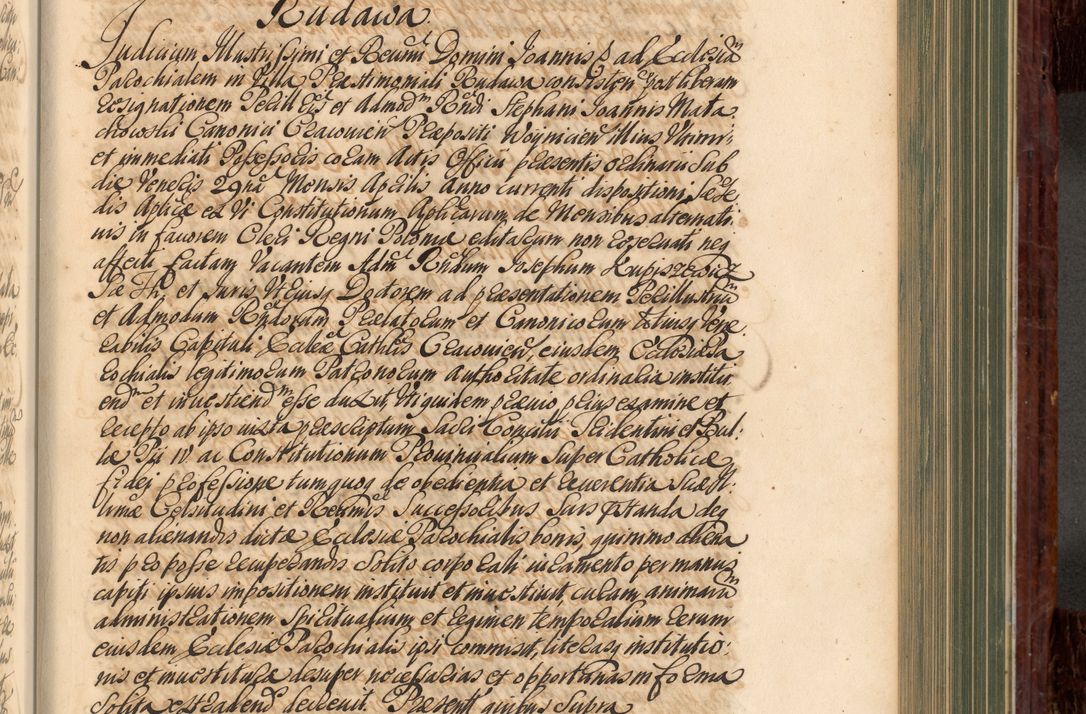 Rudawa
Judicium Illustrissimi et Reverendissimi Domini Joannis P ad Ecclesiam
Parochialem in Villa Praestimoniali Rudawa consisten. per liberam
resignationem Perill. et Admod. Rndi Stephani Joannis Mata
chowski Canonici Cracovien Praepositi Woynicien illius ultimi
et immediati Possessoris coram Actis Officii praesentis ordinarii sub
die Veneris 29na Mensis Aprilis Anno currenti dispositioni Sae
dis Aplicae ex vi Constitutionum Aplicarum de Mensibus alternati
vis in favorem Cleri Regni Poloniae editarum non reservati neq
affecti factam Vacantem Admd Rndum Josephum Kupiszewicz
Sae Th. et Juris Utriusq Doctorem ad praesentationem Perillustriū
et Admodum Rndorum Praelatorum et Canonicorum totius Vene
rabilis Capituli Ecclae Cathlis Cracovien, eiusdem Ecclesiae Pa
rochialis legitimorum Patronorum Authoritate ordinaria institu
end et investiend esse duxit, Utiquidem praevio prius examine et
recepto ab ipso iuxta praescriptum Sacri Concilii Tridentini et Bul:
lae Pii IV ac Constitutionum Provincialium super Catholicae
fidei professione tumquoq de obedientia et reverentia Suae Il:
lrmae Celsitudini et Rndmis Successoribus suis praestanda deq
non alienandis dictae Ecclesiae Parochialis bonis, quinimo aliena
tis pro posse recuperandis solito corporali iuramento per manus
capiti ipsius impositionem instituit et investivit curam animarū
administrationem Spiritualium et regimen temporalium rerum
eiusdem Ecclesiae Parochialis ipsi commisit, literasq institutio:
nis et investiturae desuper necessarias et opportunas in forma
solita extradend decrevit Praesent quibus supra